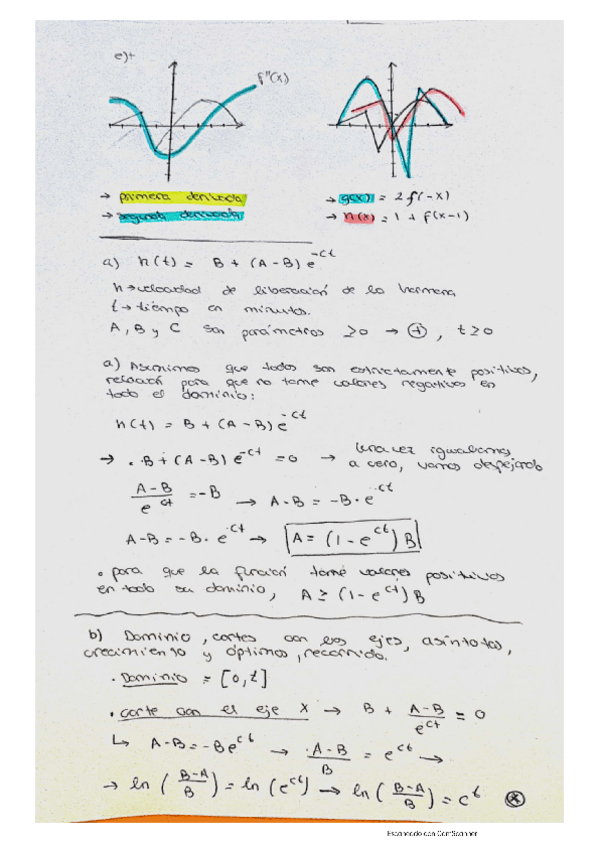 e)+
f''(x)
→ primera derivada
→ segunda derivada
→ g(x) = 2f(-x)
→ h(x) = 1 + f(x-1)
a) h(t) = B + (A-B) e^-ct
h → velocidad de liberación de la hormona
t → tiempo en minutos.
A, B y C son parámetros ≥0 → ⊕, t ≥ 0
a) Asumimos que todos son estrictamente positivos,
relación para que no tome valores negativos en
todo el dominio:
h(t) = B + (A-B) e^-ct
→ . B + (A-B) e^-ct = 0 → Una vez igualamos
a cero, vamos despejando
A-B / e^ct = -B → A-B = -B·e^ct
A-B = -B· e^ct → A = (1 - e^ct) B
• para que la función tome valores positivos
en todo su dominio, A ≥ (1-e^ct) B
b) Dominio, cortes con los ejes, asíntotas,
crecimiento y óptimos, recorrido.
· Dominio = [0, t]
· corte con el eje X → B + A-B / e^ct = 0
↳ A-B = -Be^ct → ·A-B / B = e^ct →
→ ln (B-A / B) = ln (e^ct) → ln (B-A / B) = ct ⊛
Escaneado con CamScanner